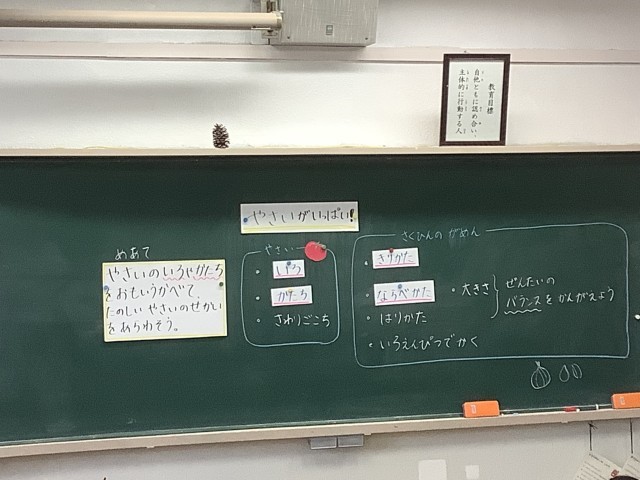 教育目標
自他ともに認め合い、
主体的に行動する人
やさいがいっぱい!
めあて
やさいのいろやかたち
をおもいうかべて、
たのしいやさいのせかい
をあらわそう。
やさい
・いろ
・かたち
・さわりごこち
さくひんのがめん
・きりかた
・ならべかた
・はりかた
・いろえんぴつでかく
・大きさ
ぜんたいの
バランスをかんがえよう